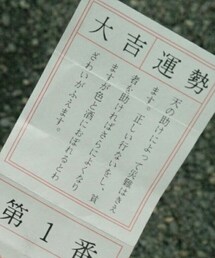 大吉運勢
天の助けによって災難はきえ
ます。正しい行ないをし、貧
者を助ければさらによくなり
ますが色と酒におぼれるとわ
ざわいがふえます。
第１番